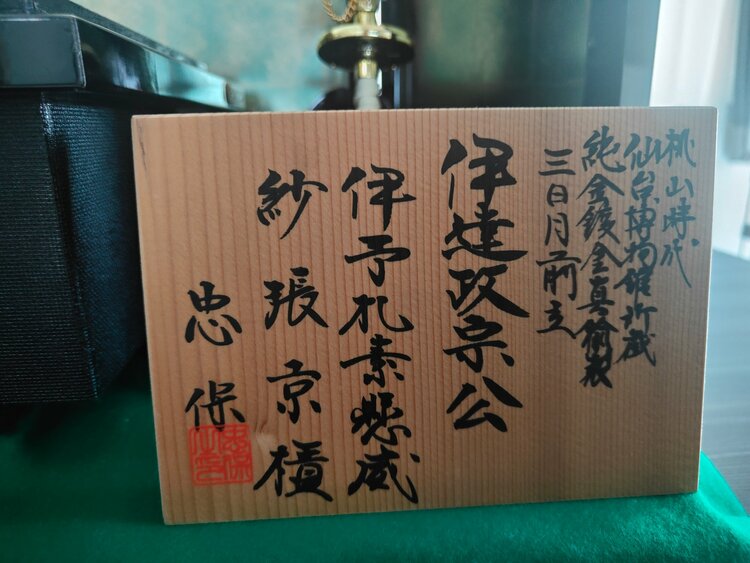 桃山時代
仙台博物館所蔵
純金鍍金真鍮製
三日月前立
伊達政宗公
伊予札素懸威
紗張京櫃
忠保